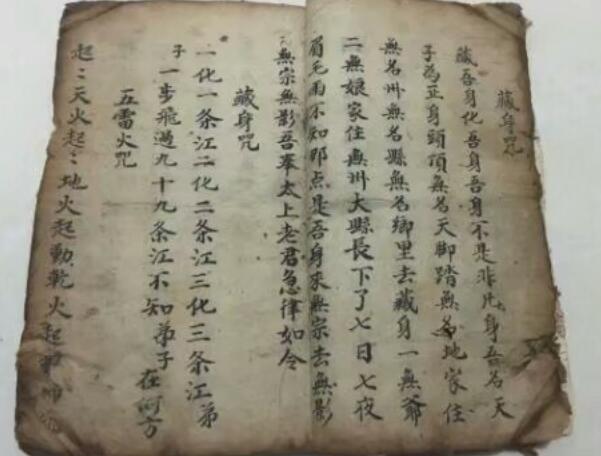 藏身咒
藏吾身化吾身吾身不是非凡身吾名天
子為正身頭頂無名天脚踏無名地家住
無名州無名縣無名鄉里去藏身一無爺
二無娘家住無州大縣長下了七日七夜
眉毛雨不知那点是吾身來無宗去無影
無宗無影吾奉太上老君急律如令
藏身咒
一化一条江二化二条江三化三条江弟
子一步飛過九十九条江不知弟子在何方
五雷火咒
起〻天火起〻地火起動乾火起